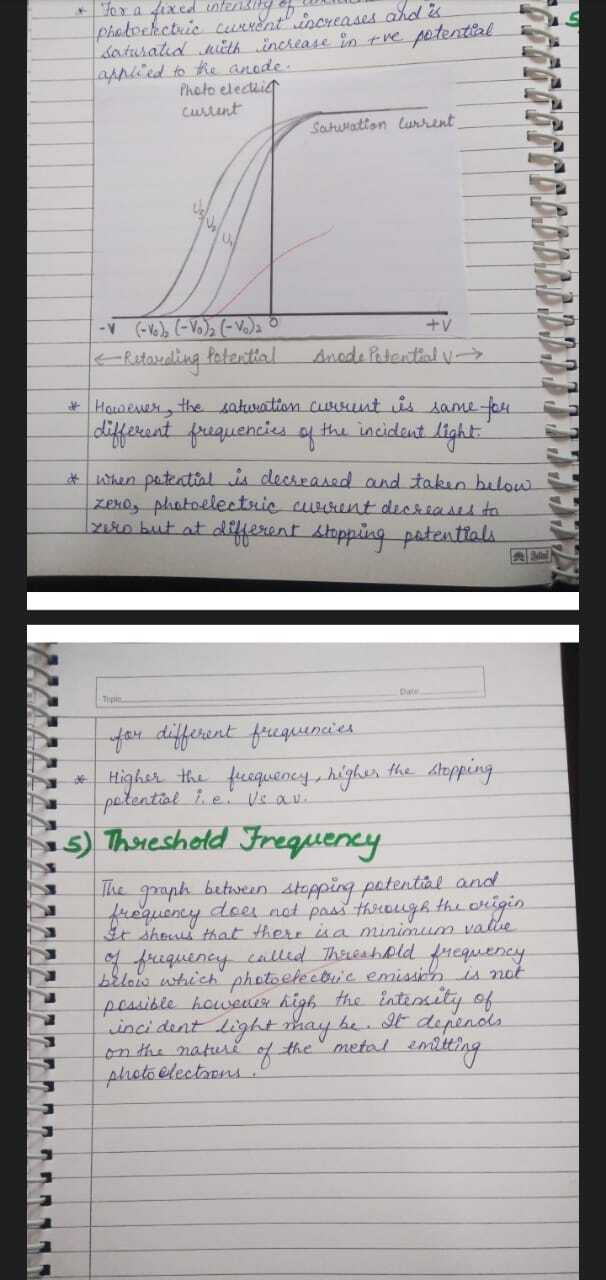 * For a fixed intensity of
photoelectric current increases and is
saturated with increase in +ve potential
applied to the anode.
Photo electric
current
Saturation Current
U₃
U₂
U₁
-V (-V₀)₃ (-V₀)₂ (-V₀)₂ 0 +V
← Retarding Potential Anode Potential V →
* However, the saturation current is same for
different frequencies of the incident light.
* when potential is decreased and taken below
zero, photoelectric current decreases to
zero but at different stopping potentials
Topic
Date
for different frequencies
* Higher the frequency, higher the stopping
potential i.e. Vs α ν.
5) Threshold Frequency
The graph between stopping potential and
frequency does not pass through the origin
It shows that there is a minimum value
of frequency called Threshold frequency
below which photoelectric emission is not
possible however high the intensity of
incident light may be. It depends
on the nature of the metal emitting
photoelectrons.